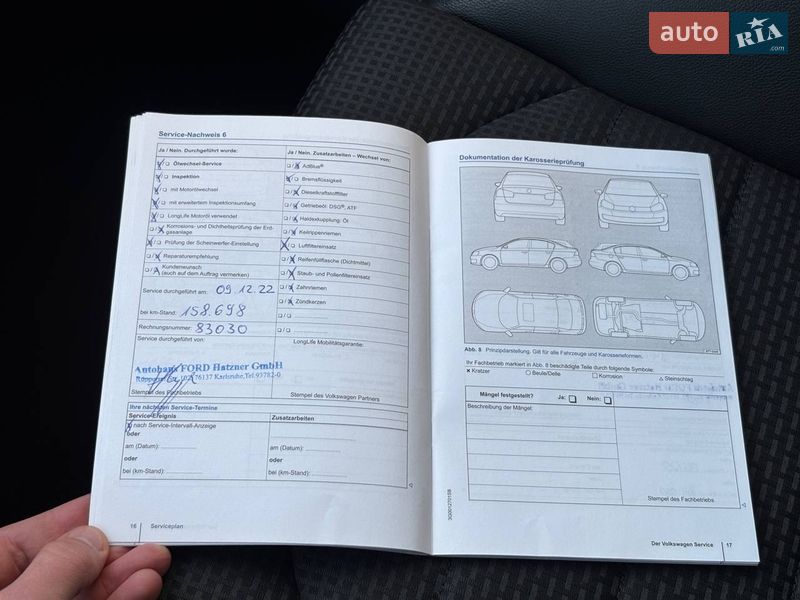 auto RIA .com
Service-Nachweis 6
Ja / Nein. Durchgeführt wurde:
Ölwechsel-Service
Inspektion
mit Motorölwechsel
mit erweitertem Inspektionsumfang
LongLife Motoröl verwendet
Korrosions- und Dichtheitsprüfung der Erd-
gasanlage
Prüfung der Scheinwerfer-Einstellung
Reparaturempfehlung
Kundenwunsch
(auch auf dem Auftrag vermerken)
Service durchgeführt am: 09.12.22
bei km-Stand: 158.698
Rechnungsnummer: 83030
Service durchgeführt von:
Autohaus FORD Hatzner GmbH
76137 Karlsruhe, Tel. 93782-0
Stempel des Fachbetriebs
Ja / Nein. Zusatzarbeiten – Wechsel von:
AdBlue®
Bremsflüssigkeit
Dieselkraftstofffilter
Getriebeöl: DSG®, ATF
Haldexkupplung: Öl
Keilrippenriemen
Luftfiltereinsatz
Reifenfüllflasche (Dichtmittel)
Staub- und Pollenfiltereinsatz
Zahnriemen
Zündkerzen
LongLife Mobilitätsgarantie:
Stempel des Volkswagen Partners
Ihre nächsten Service-Termine
Service-Ereignis
nach Service-Intervall-Anzeige
oder
am (Datum):
oder
bei (km-Stand):
Zusatzarbeiten
am (Datum):
oder
bei (km-Stand):
16 Serviceplan
Dokumentation der Karosserieprüfung
Abb. 8 Prinzipdarstellung. Gilt für alle Fahrzeuge und Karosserieformen.
Ihr Fachbetrieb markiert in Abb. 8 beschädigte Teile durch folgende Symbole:
× Kratzer ○ Beule/Delle □ Korrosion △ Steinschlag
Mängel festgestellt? Ja: Nein:
Beschreibung der Mängel:
Stempel des Fachbetriebs
Der Volkswagen Service 17